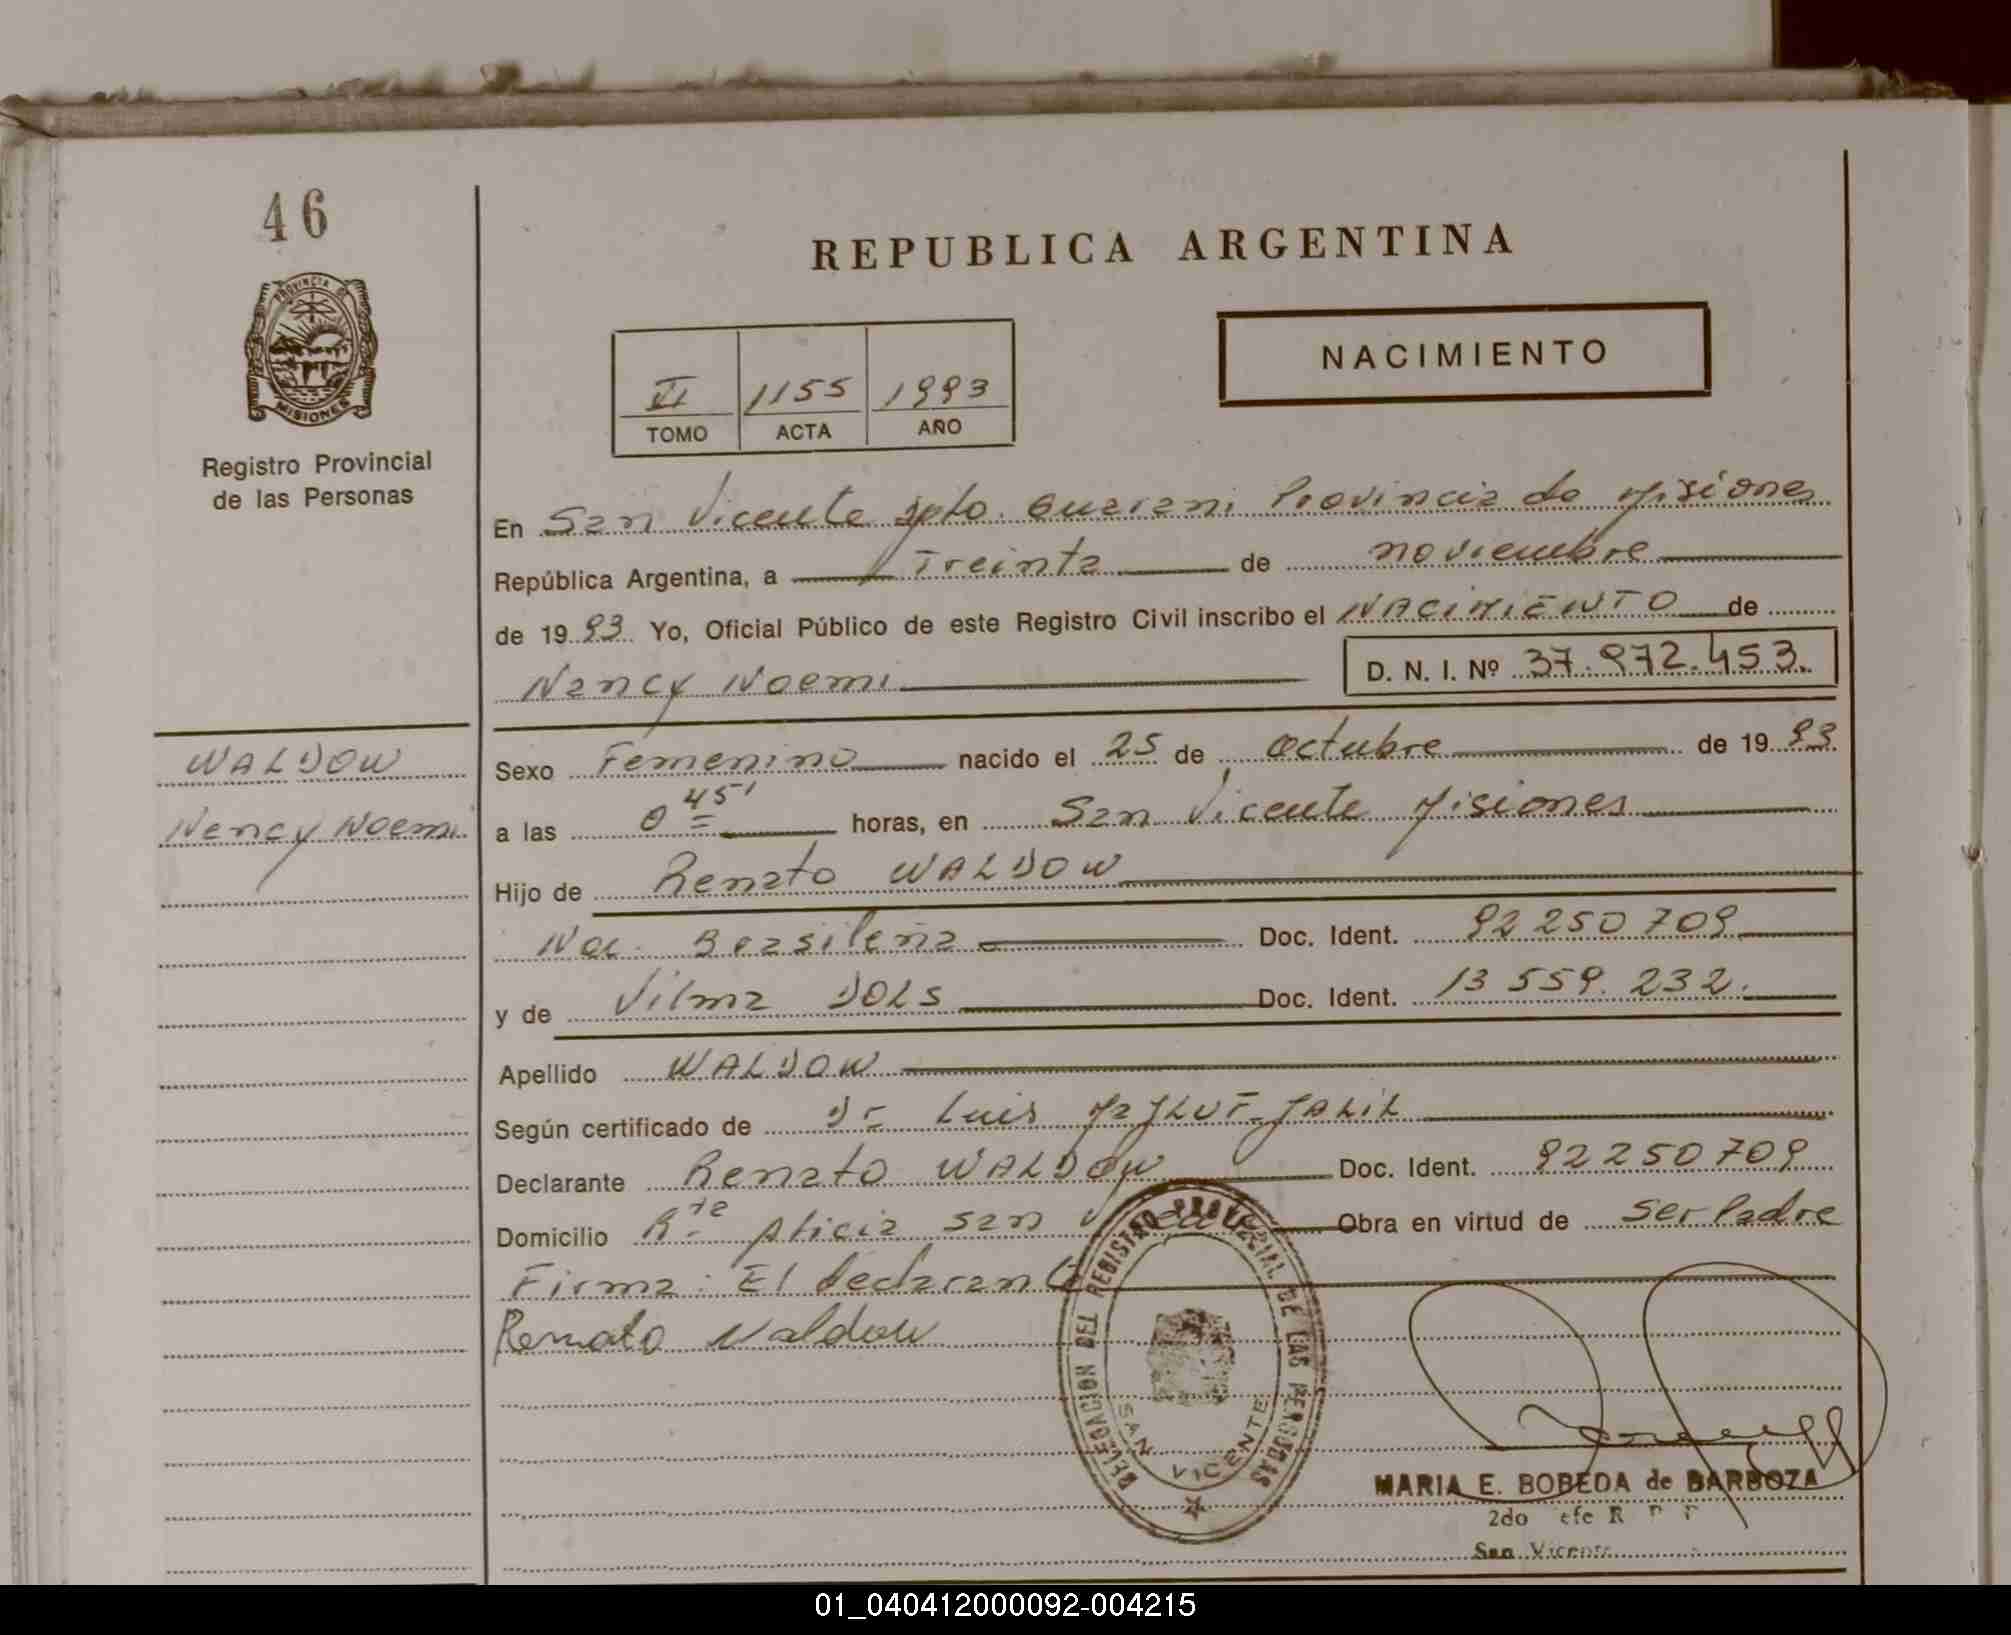 46
REPUBLICA ARGENTINA
PROVINCIA DE
MISIONES
Registro Provincial
de las Personas
VI 1155 1993
TOMO ACTA AÑO
NACIMIENTO
En San Vicente Dpto. Guarani Provincia de Misiones
República Argentina, a Treinta de noviembre
de 1993 Yo, Oficial Público de este Registro Civil inscribo el NACIMIENTO de
Nancy Noemi D. N. I. Nº 37.972.453.
WALDOW
Nancy Noemi
Sexo Femenino nacido el 25 de octubre de 1993
a las 0 45' horas, en San Vicente Misiones
Hijo de Renato WALDOW
Nac. Brasileña Doc. Ident. 92 250 709
y de Vilma DOLS Doc. Ident. 13 559. 232.
Apellido WALDOW
Según certificado de Dr Luis JALIL
Declarante Renato WALDOW Doc. Ident. 92250709
Domicilio Rta Alicia San Vicente Obra en virtud de ser Padre
Firma: El declarante
Renato Waldow
DELEGACION DEL REGISTRO PROVINCIAL DE LAS PERSONAS
SAN VICENTE
MARIA E. BOBEDA de BARBOZA
2do efe R P P
San Vicente
01_040412000092-004215